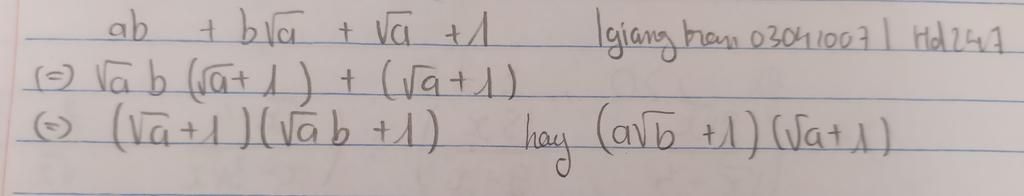 ab + b√a + √a + 1 |giang tran 03041007| Hd247
(=) √a b (√a + 1) + (√a + 1)
(=) (√a + 1)(√a b + 1) hay (a√b + 1)(√a + 1)